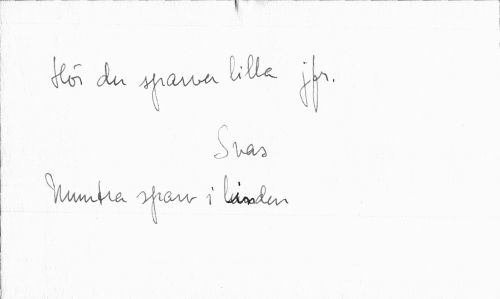 Hör du sparven lilla jfr.
Svas
Muntra sparv i linden